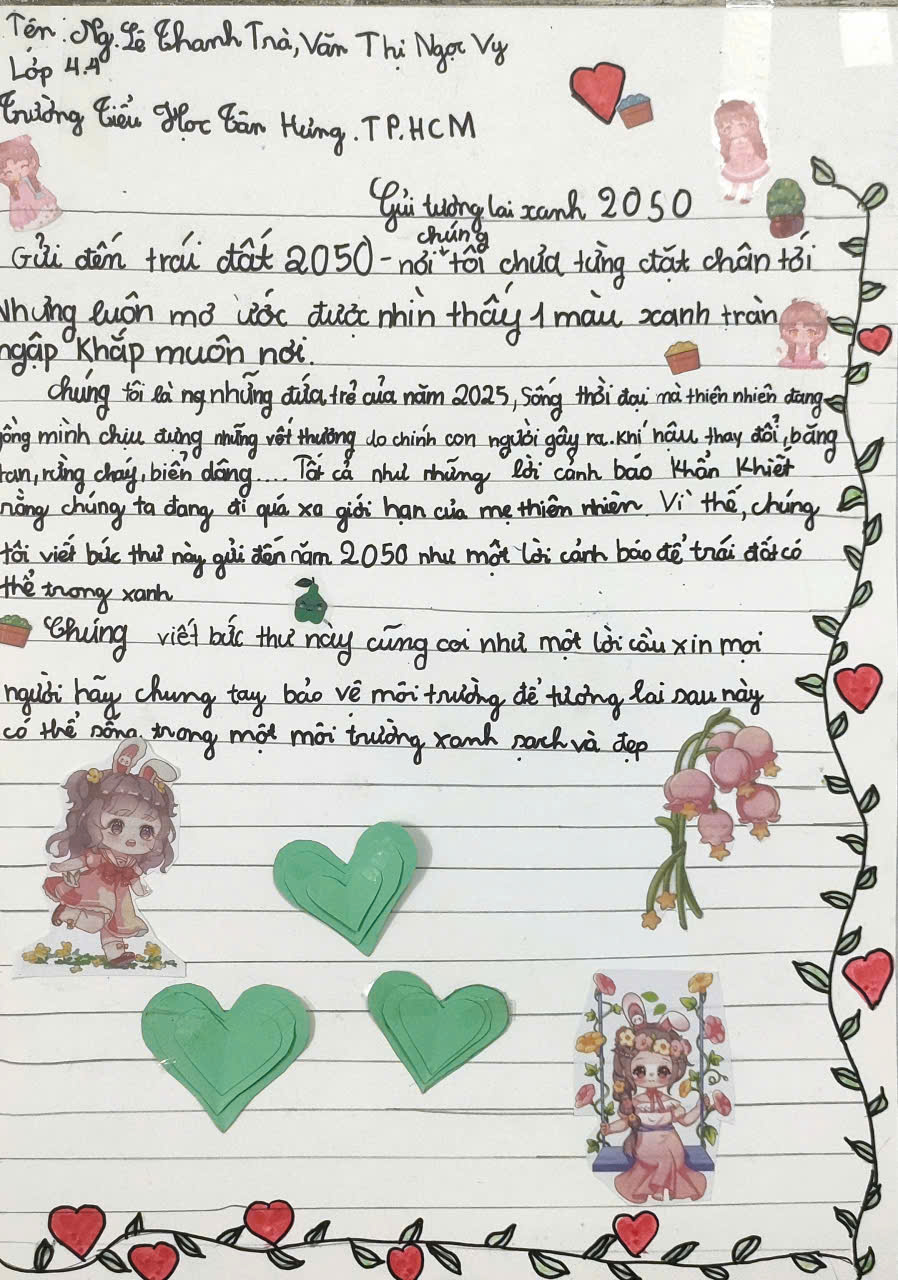 Tên: Ng. Lê Thanh Trà, Văn Thị Ngọc Vy
Lớp 4.4
Trường Tiểu Học Tân Hưng. TP.HCM
Gửi tương lai xanh 2050
Gửi đến trái đất 2050 - nơi chúng tôi chưa từng đặt chân tới
Nhưng luôn mơ ước được nhìn thấy 1 màu xanh tràn
ngập khắp muôn nơi.
Chúng tôi là ng những đứa trẻ của năm 2025, Sống thời đại mà thiên nhiên đang
gồng mình chịu đựng những vết thương do chính con người gây ra. Khí hậu thay đổi, băng
tan, rừng cháy, biển dâng.... Tất cả như những lời cảnh báo khẩn khiết
rằng chúng ta đang đi quá xa giới hạn của mẹ thiên nhiên. Vì thế, chúng
tôi viết bức thư này gửi đến năm 2050 như một lời cảnh báo để trái đất có
thể trong xanh
Chúng viết bức thư này cũng coi như một lời cầu xin mọi
người hãy chung tay bảo vê môi trường để tương lai sau này
có thể sống. trong một môi trường xanh sạch và đẹp